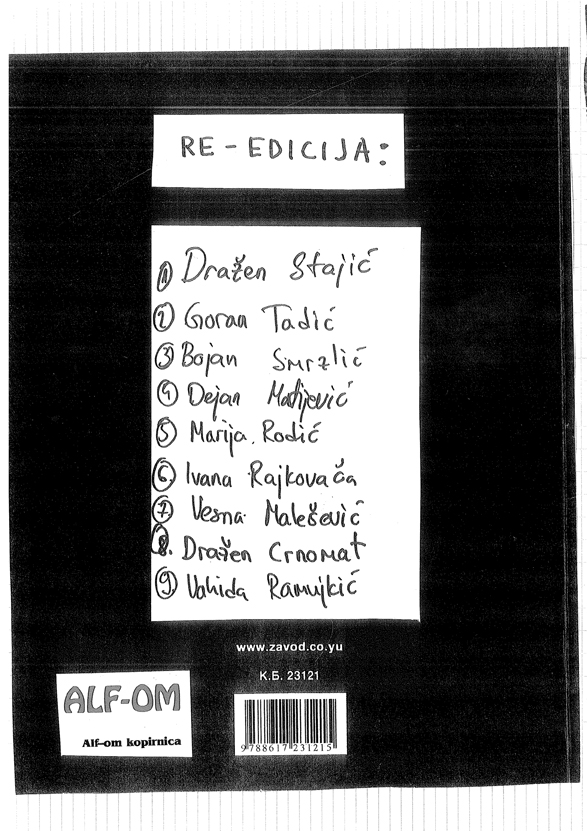 RE-EDICIJA:
1 Dražen Stajić
2 Goran Tadić
3 Bojan Smrzlić
4 Dejan Matijević
5 Marija Rodić
6. Ivana Rajkovača
7. Vesna Malešević
8. Dražen Crnomat
9 Vahida Ramujkić
www.zavod.co.yu
К.Б. 23121
ALF-OM
Alf-om kopirnica
9788617231215